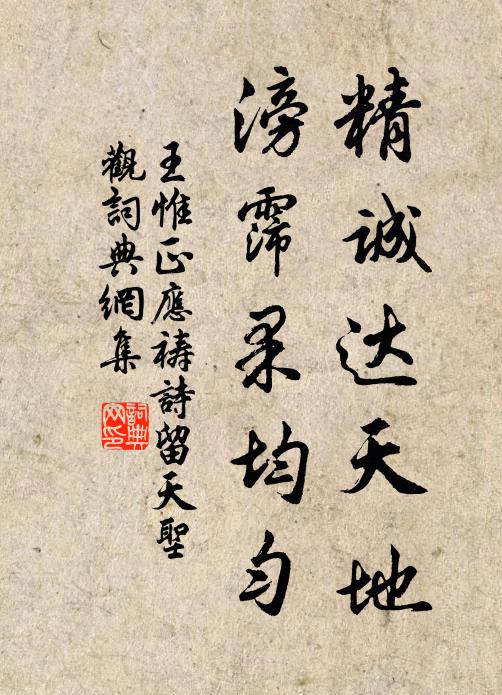 精诚达天地
滂霈果均匀
王惟正應祷詩留天聖
觀詞典網集
詞典
网印